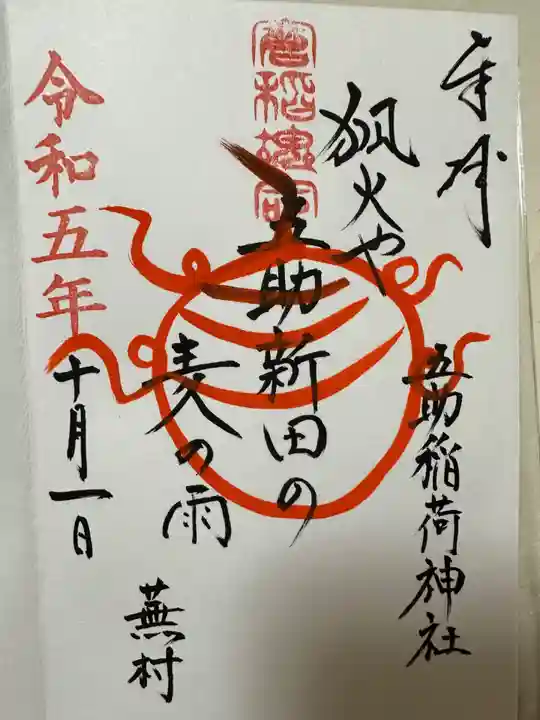 奉拝
五助稲荷神社
狐火や
五助新田の
麦の雨
蕪村
令和五年
十月一日